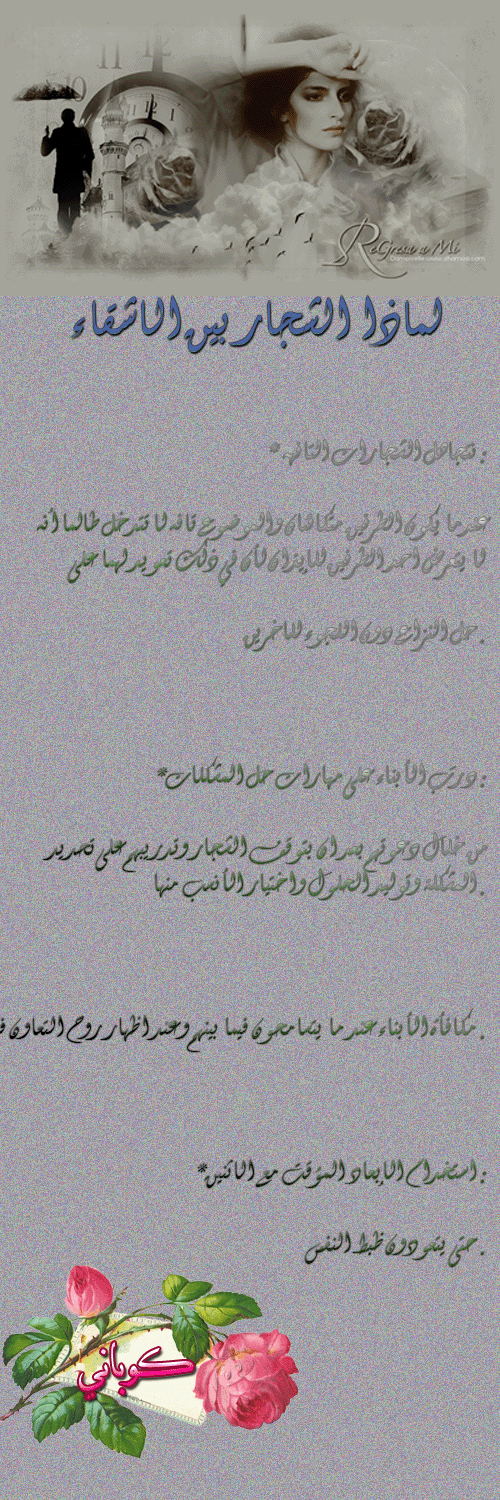 12
11
10
11 12 1
ReGresa a Mi
لماذا الشجار بين الاشقاء
: تتجاهل الشجارات التافهه *
عندما يكون الطرفين متكافئان والموضوع تافه لا تتدخل طالما أنه
لا يتعرض أحد الطرفين للايذاء لأن في ذلك تعويد لهما على
. حل النزاع دون اللجوء للاخرين
: درب الأبناء على مهارات حل المشكلات*
من خلال دعوتهم بعد ان يتوقف الشجار وتدريبهم على تحديد
. المشكلة وتوليد الحلول واختيار الأنسب منها
. مكافأة الأبناء عندما يتسامحون فيما بينهم وعند اظهار روح التعاون
: استخدام الابعاد المؤقت مع الاثنين*
. حتى يتعودون ظبط النفس
كوباني